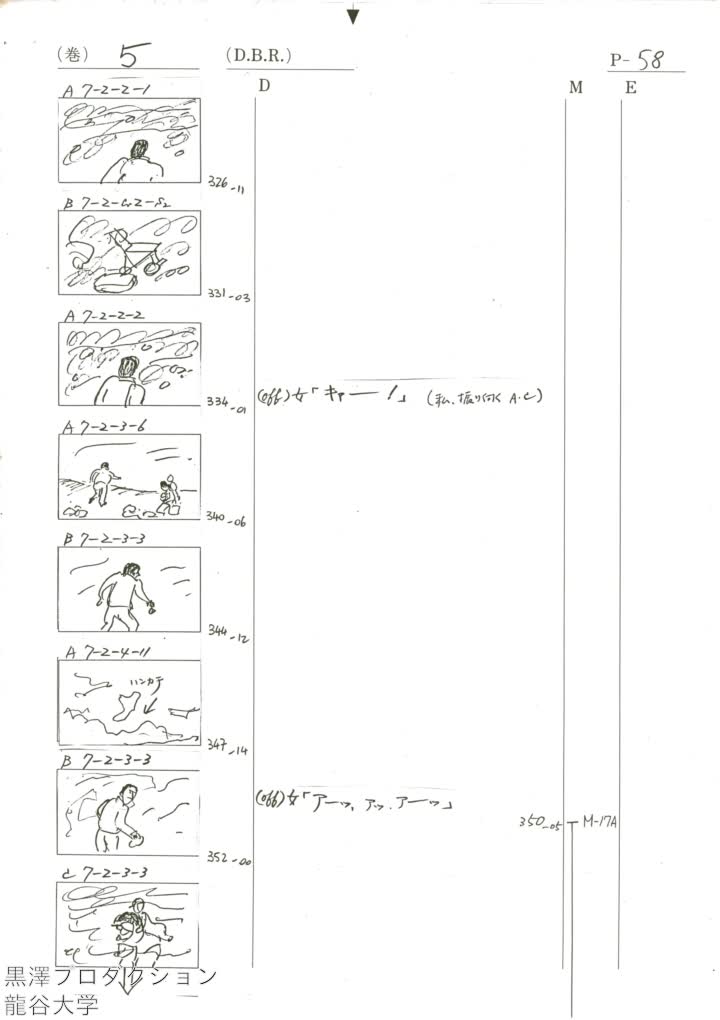 (巻) 5
(D.B.R.)
P-58
D
M
E
A 7-2-2-1
326-11
331-03
A 7-2-2-2
334-01
(off)女「キャー!」 (私、振り向く A.C)
A 7-2-3-6
340-06
B 7-2-3-3
344-12
A 7-2-4-11
ハンカチ
347-14
B 7-2-3-3
(off)女「アーッ、アッ、アーッ」
350-05 M-17A
352-00
C 7-2-3-3
黒澤プロダクション
龍谷大学